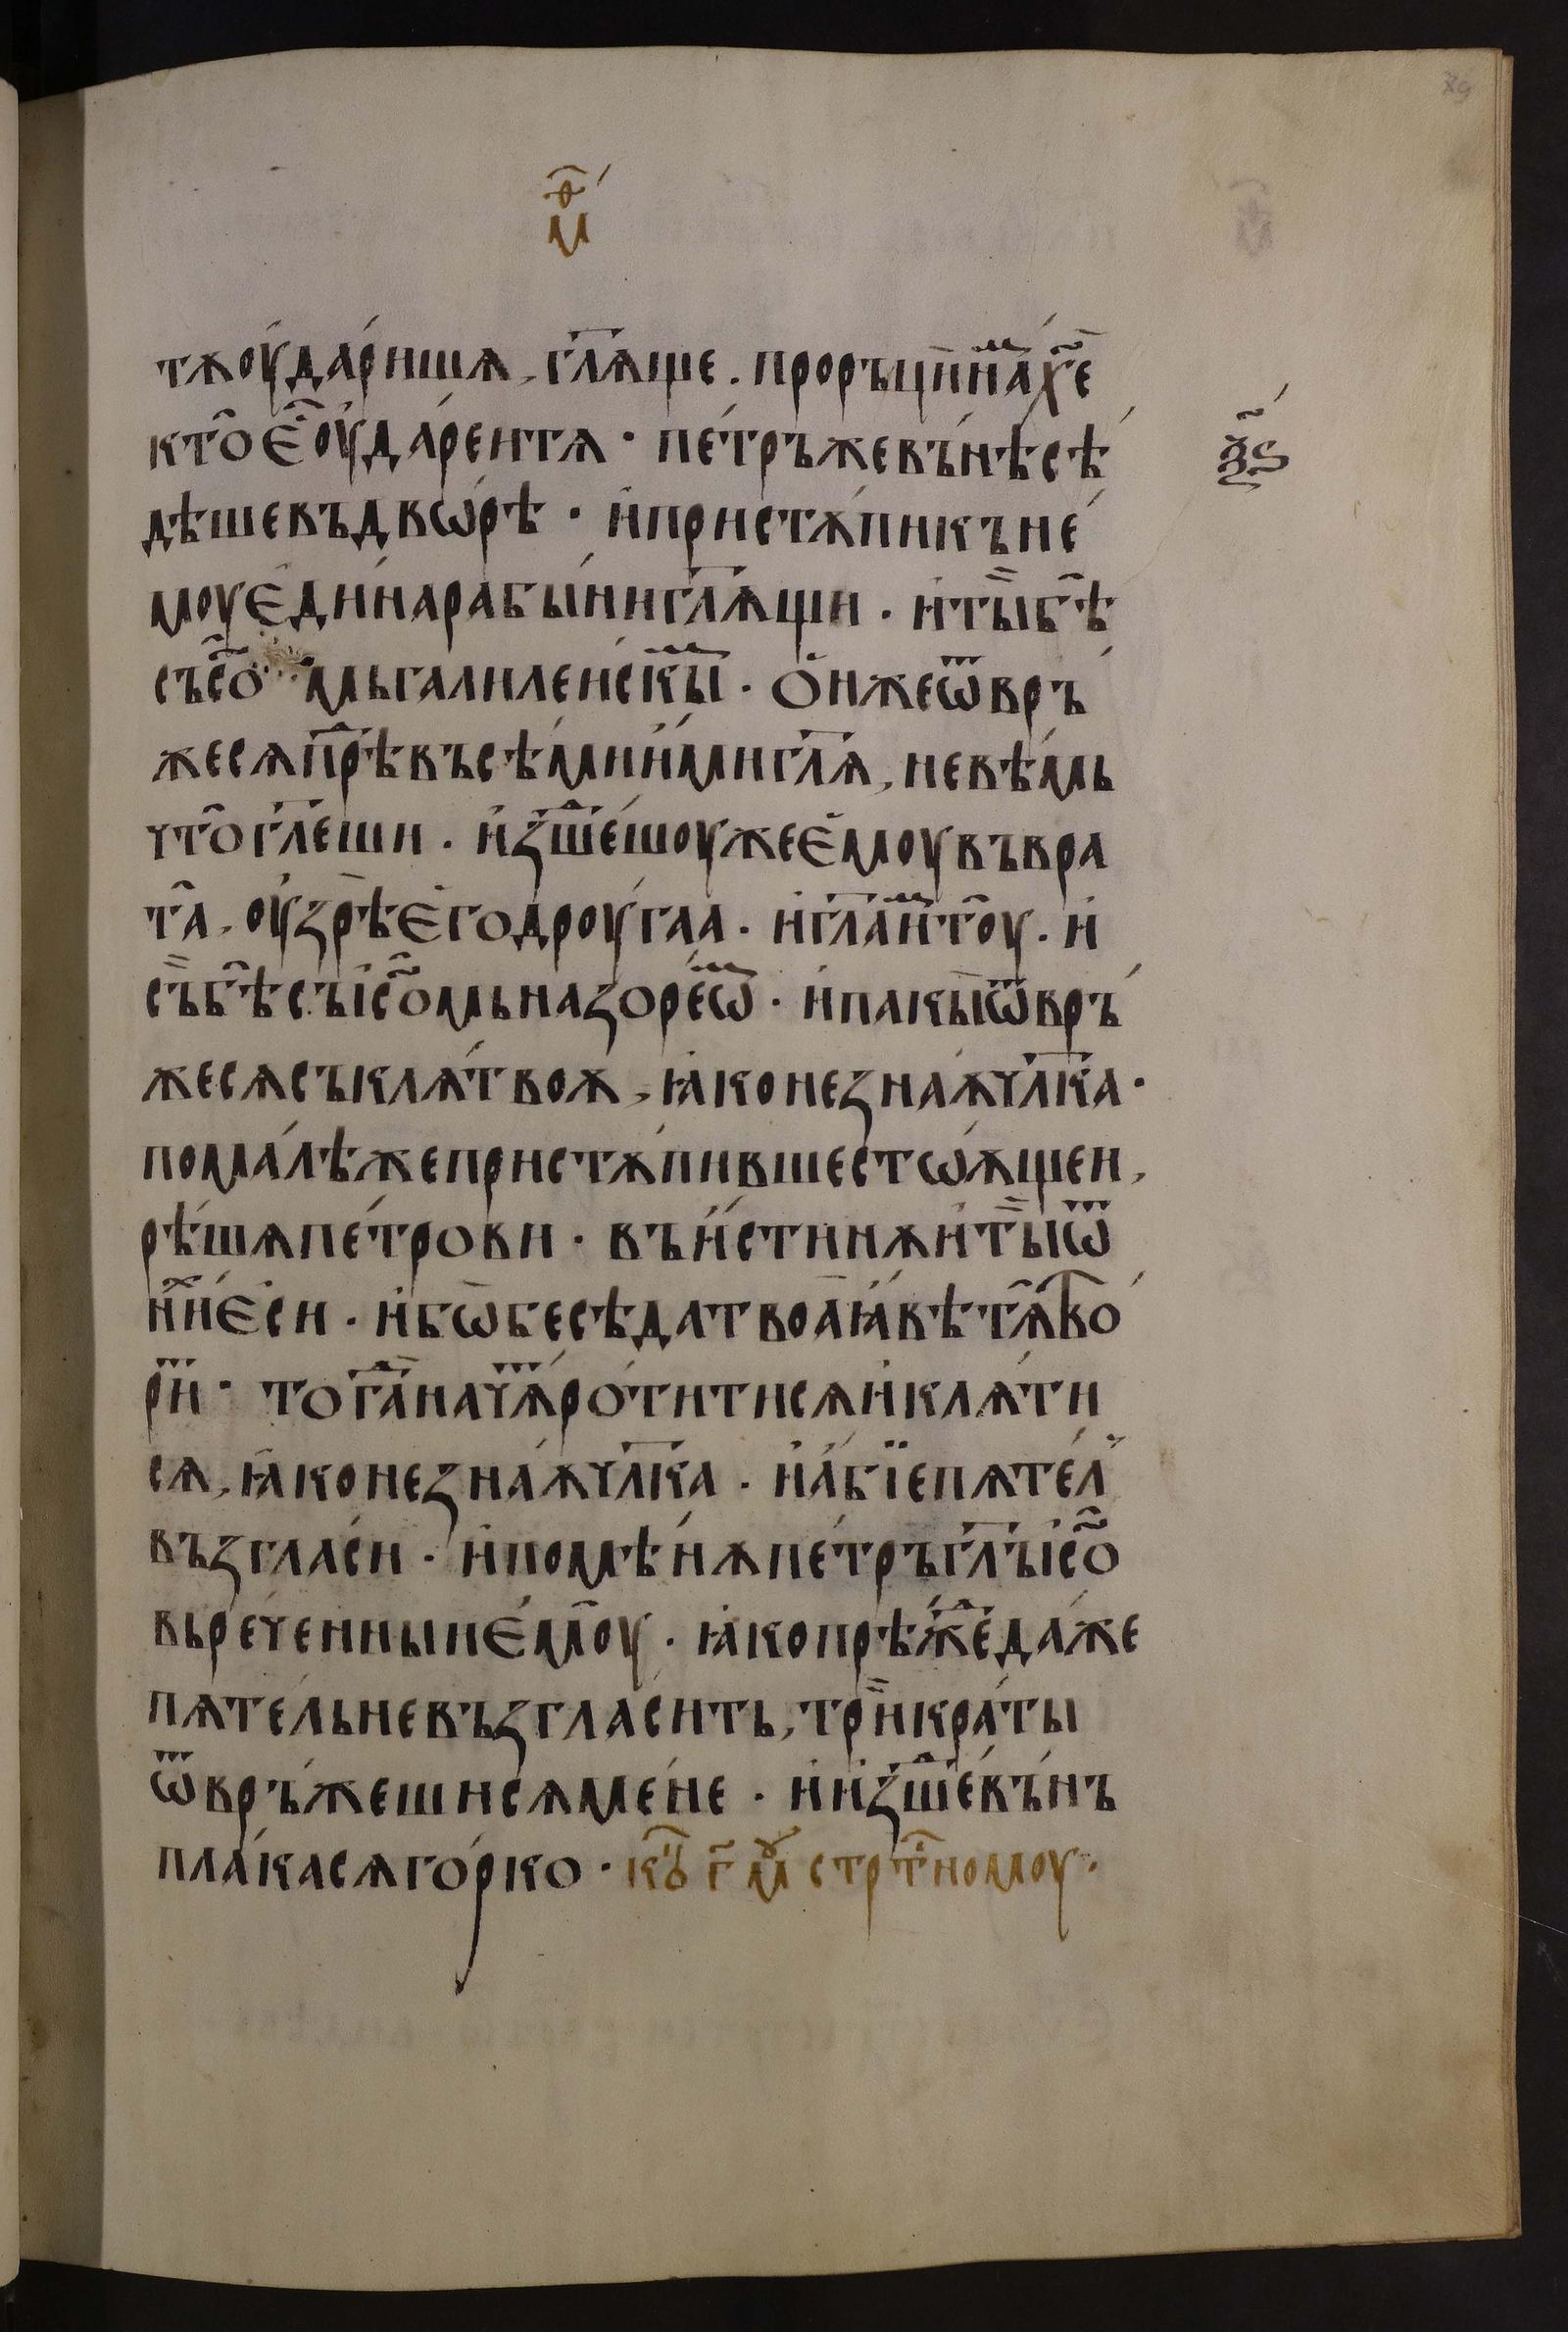 мⷴ҇
тѫоу҆да́ришѧ, гл҃ѧ́ще. прорьци́ на́мⷨ х҃е
кто̑ є҆ оу҆да́реи тѧ · пе́тръ же вънѣ̀ сѣ́
дѣше въ двѡ́рѣ · и҆ пристѫ́пи къ не́
моу є҆ди́на рабы́ни гл҃ѧ́щи · и҆ ты̏ бѣ̑
съ і҆с҃омь галиле́искыⷨ · о҆́н же ѿвръ́
же сѧ прѣ̑ въсѣ́ми и҆́ми гл҃ѧ, не вѣ́мь
что̑ гл҃еши · и҆зше́шоу же є҆моу въ вра
та̑, оу҆зрѣ̀ є҆го̀ дроу́гаа · и҆ гл҃а и҆ⷨ тоу̑ · и҆
съ̏ бѣ̑ съ і҆с҃омь назоре́ѡⷨ · и҆ пакы̀ ѿвръ́
же сѧ съ клѧ́твоѫ, ꙗ҆́ко не зна́ѫ чл҃ка ·
по ма́лѣ же пристѫ́пивше стѡѫ́щеи,
рѣ́шѧ пе́трови · въ и҆́стинѫ и҆ ты̏ ѿ
ни́хⷯ є҆си · и҆бѡ̀ бесѣ́да твоа̀ ꙗ҆́вѣ тѧ̑ тво́
риⷮ · тог҃да̀ начѧⷮ ро́тити сѧ и҆ клѧ́ти
сѧ, ꙗ҆́ко не зна́ѫ чл҃ка · и҆ а҆́бїе пѣте́л
възгласи · и҆ помѣнѫ̀ пе́тръ гл҃ъ і҆с҃о
вь рече́нныи є҆моу̑ · ꙗ҆́ко прѣ́жⷣе да́же
пѣте́ль не възгласи́ть, три̏ кра́ты
ѿвръ́жеши сѧ ме́не · и҆ и҆зше́ⷣ въ́нъ
плака сѧ го́рко · ко҃ г҃ мⷹ стрⷭ҇тномоу·